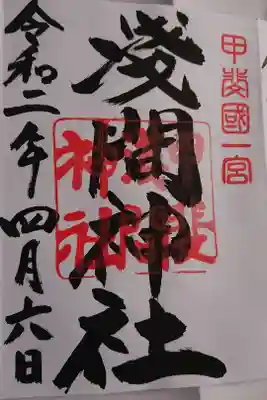 甲斐國一宮
浅間神社
令和二年四月六日